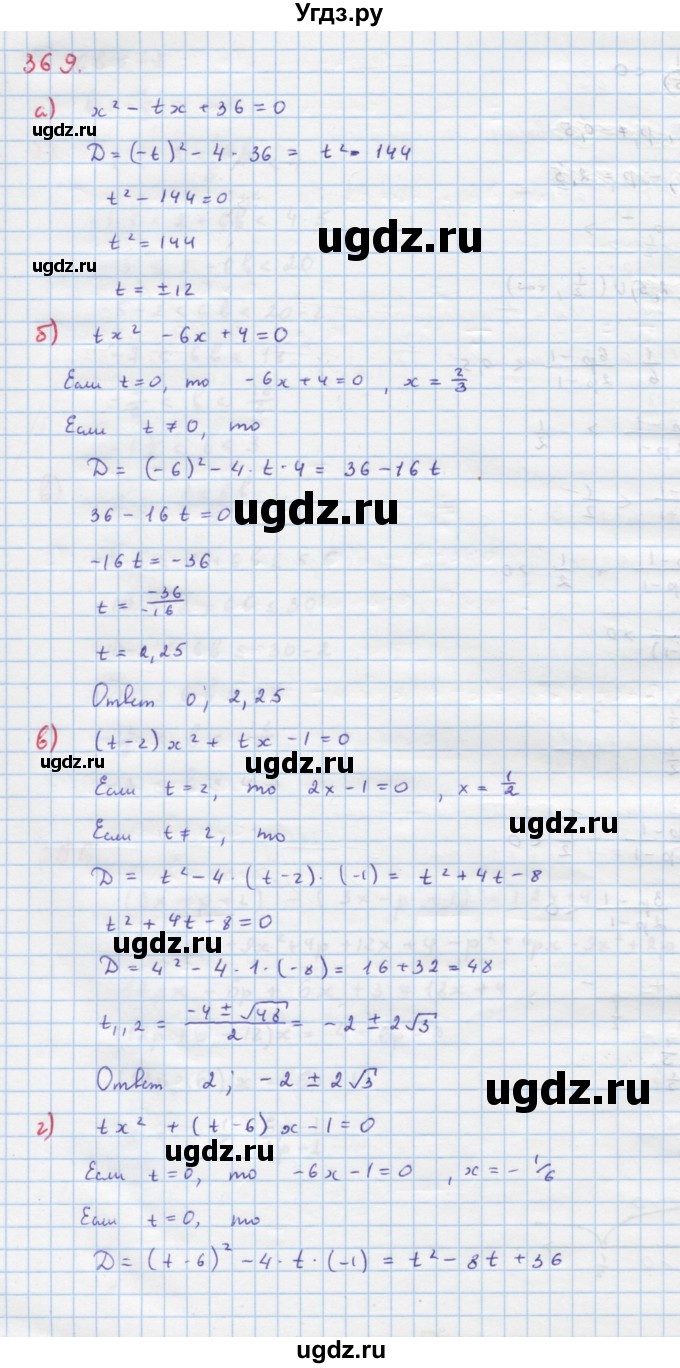 Угдз.ру
369.
а) x² - tx + 36 = 0
ugdz.ru
D = (-t)² - 4 · 36 = t² - 144
t² - 144 = 0
ugdz.ru
t² = 144
ugdz.ru
t = ±12
б) tx² - 6x + 4 = 0
Если t = 0, то -6x + 4 = 0, x = 2/3
Если t ≠ 0, то
D = (-6)² - 4 · t · 4 = 36 - 16t
36 - 16t = 0
ugdz.ru
-16t = -36
t = -36/-16
t = 2,25
Ответ 0; 2,25
в) (t-2)x² + tx - 1 = 0
ugdz.ru
ugdz.ru
Если t = 2, то 2x - 1 = 0, x = 1/2
Если t ≠ 2, то
D = t² - 4 · (t-2) · (-1) = t² + 4t - 8
t² + 4t - 8 = 0
ugdz.ru
D = 4² - 4 · 1 · (-8) = 16 + 32 = 48
t₁,₂ = (-4 ± √48)/2 = -2 ± 2√3
Ответ 2; -2 ± 2√3
ugdz.ru
г) tx² + (t-6)x - 1 = 0
ugdz.ru
Если t = 0, то -6x - 1 = 0, x = -1/6
Если t = 0, то
D = (t-6)² - 4 · t · (-1) = t² - 8t + 36
ugdz.ru